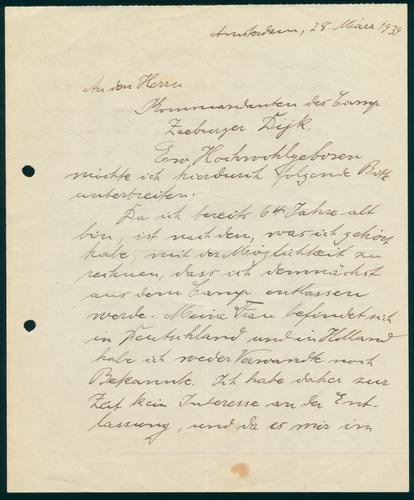 Amsterdam, 28. März 1939
An den Herrn
Kommandanten des Camp
Zeeburger Dijk.
Ew. Hochwohlgeboren
möchte ich hierdurch folgende Bitte
unterbreiten.
Da ich bereits 64 Jahre alt
bin, ist nach dem, was ich gehört
habe, mit der Möglichkeit zu
rechnen, dass ich demnächst
aus dem Camp entlassen
werde. Meine Frau befindet sich
in Deutschland und in Holland
habe ich weder Verwandte noch
Bekannte. Ich habe daher zur
Zeit kein Interesse an der Ent-
lassung, und da es mir im